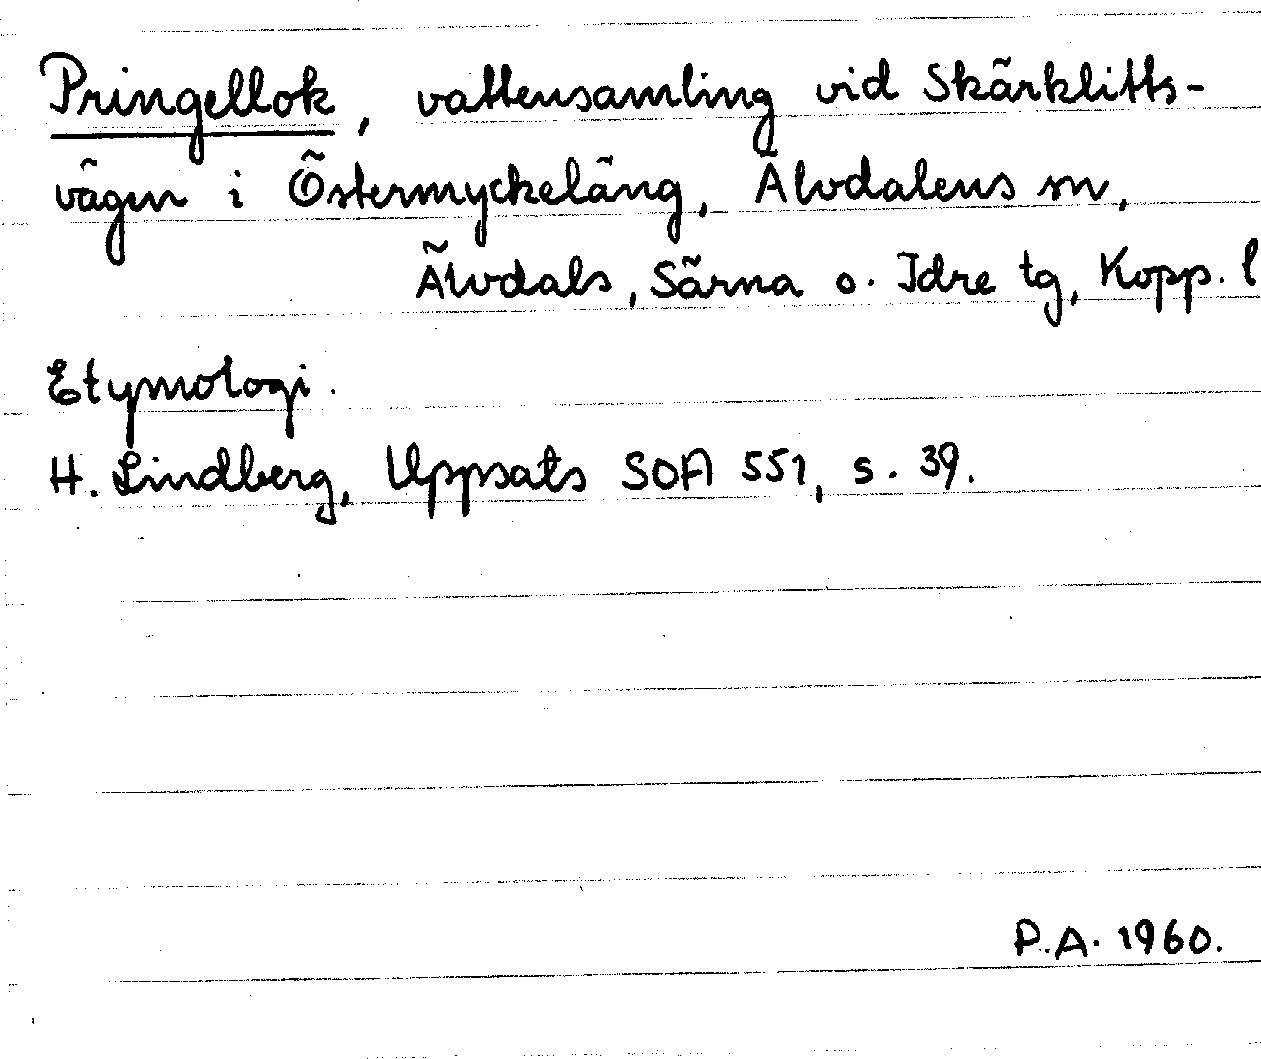 Pringellok, vattensamling vid Skärklitts-
vägen i Östermyckeläng, Älvdalens sn,
Älvdals, Särna o. Idre tg, Kopp. l
Etymologi.
H. Lindberg, Uppsats SOA 551, s. 39.
P.A. 1960.